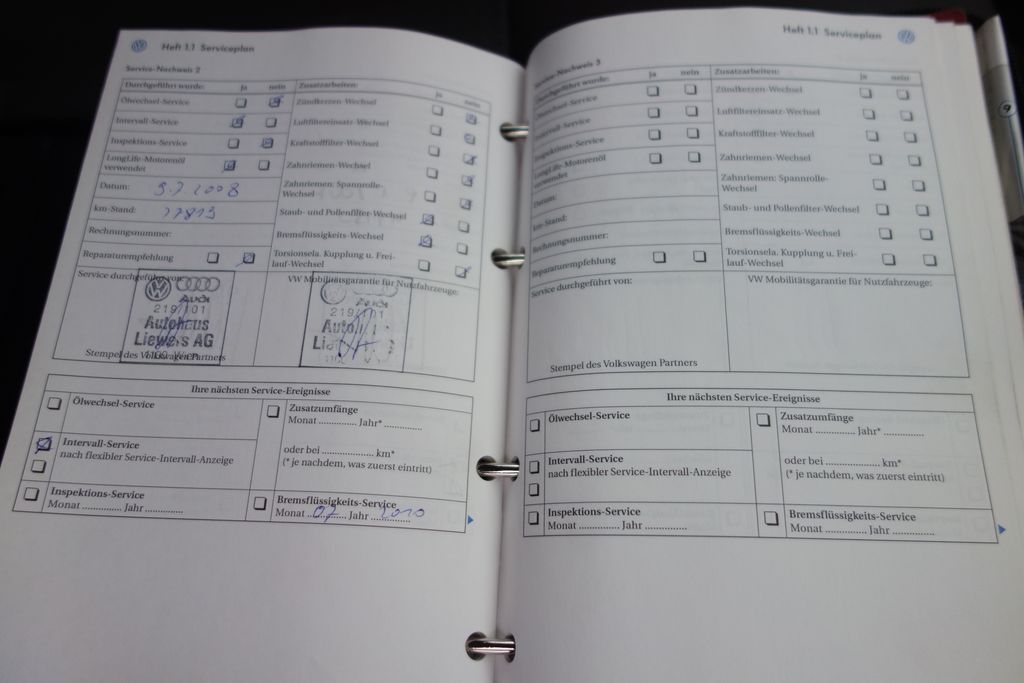 Heft 1.1 Serviceplan
Service-Nachweis 2
Durchgeführt wurde: Ja nein Zusatzarbeiten: Ja nein
Ölwechsel-Service
Zündkerzen-Wechsel
Intervall-Service
Luftfiltereinsatz-Wechsel
Inspektions-Service
Kraftstofffilter-Wechsel
LongLife-Motorenöl
verwendet
Zahnriemen-Wechsel
Datum: 9.7.2008
Zahnriemen: Spannrolle-
Wechsel
km-Stand: 77813
Staub- und Pollenfilter-Wechsel
Rechnungsnummer:
Bremsflüssigkeits-Wechsel
Reparaturempfehlung
Torsionsela. Kupplung u. Frei-
lauf-Wechsel
Service durchgeführt von:
VW Mobilitätsgarantie für Nutzfahrzeuge:
Audi
219/101
Autohaus
Liewers AG
Stempel des Volkswagen Partners
Audi
219/101
Ihre nächsten Service-Ereignisse
Ölwechsel-Service
Zusatzumfänge
Monat .............. Jahr* ..............
Intervall-Service
nach flexibler Service-Intervall-Anzeige
oder bei .................... km*
(* je nachdem, was zuerst eintritt)
Inspektions-Service
Monat .............. Jahr ..............
Bremsflüssigkeits-Service
Monat 07 Jahr 2010
Heft 1.1 Serviceplan
Service-Nachweis 3
Durchgeführt wurde: Ja nein Zusatzarbeiten: Ja nein
Ölwechsel-Service
Zündkerzen-Wechsel
Intervall-Service
Luftfiltereinsatz-Wechsel
Inspektions-Service
Kraftstofffilter-Wechsel
LongLife-Motorenöl
verwendet
Zahnriemen-Wechsel
Datum:
Zahnriemen: Spannrolle-
Wechsel
km-Stand:
Staub- und Pollenfilter-Wechsel
Rechnungsnummer:
Bremsflüssigkeits-Wechsel
Reparaturempfehlung
Torsionsela. Kupplung u. Frei-
lauf-Wechsel
Service durchgeführt von:
VW Mobilitätsgarantie für Nutzfahrzeuge:
Stempel des Volkswagen Partners
Ihre nächsten Service-Ereignisse
Ölwechsel-Service
Zusatzumfänge
Monat .............. Jahr* ..............
Intervall-Service
nach flexibler Service-Intervall-Anzeige
oder bei .................... km*
(* je nachdem, was zuerst eintritt)
Inspektions-Service
Monat .............. Jahr ..............
Bremsflüssigkeits-Service
Monat .............. Jahr ..............